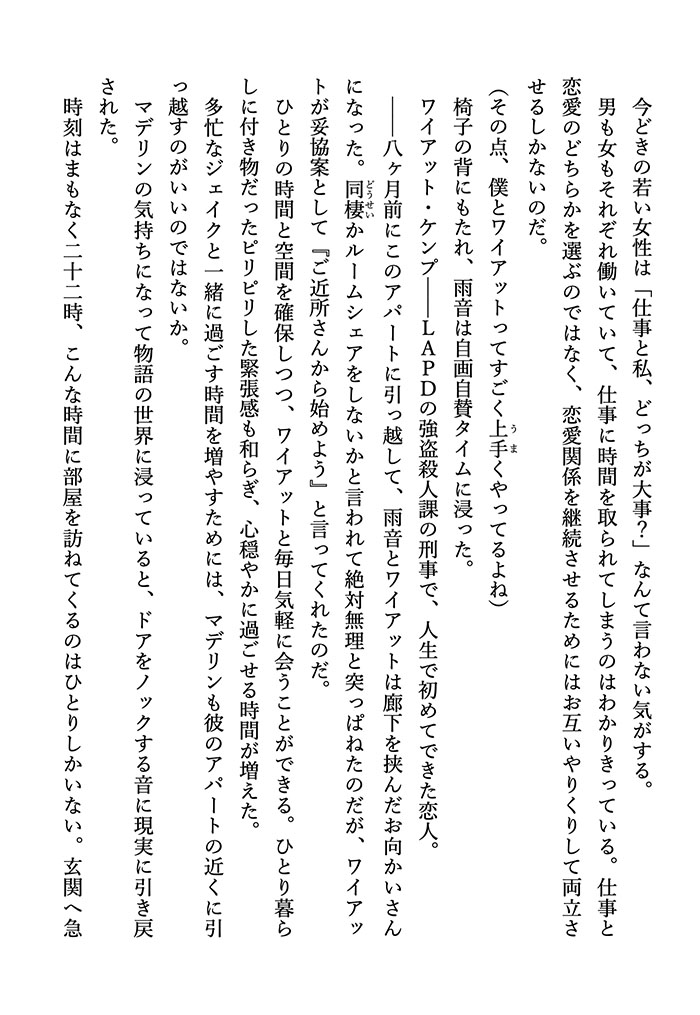 今どきの若い女性は「仕事と私、どっちが大事？」なんて言わない気がする。
男も女もそれぞれ働いていて、仕事に時間を取られてしまうのはわかりきっている。仕事と
恋愛のどちらかを選ぶのではなく、恋愛関係を継続させるためにはお互いやりくりして両立さ
せるしかないのだ。
（その点、僕とワイアットってすごく上手くやってるよね）
椅子の背にもたれ、雨音は自画自賛タイムに浸った。
ワイアット・ケンプ――ＬＡＰＤの強盗殺人課の刑事で、人生で初めてできた恋人。
――八ヶ月前にこのアパートに引っ越して、雨音とワイアットは廊下を挟んだお向かいさん
になった。同棲かルームシェアをしないかと言われて絶対無理と突っぱねたのだが、ワイアッ
トが妥協案として『ご近所さんから始めよう』と言ってくれたのだ。
ひとりの時間と空間を確保しつつ、ワイアットと毎日気軽に会うことができる。ひとり暮ら
しに付き物だったピリピリした緊張感も和らぎ、心穏やかに過ごせる時間が増えた。
多忙なジェイクと一緒に過ごす時間を増やすためには、マデリンも彼のアパートの近くに引
っ越すのがいいのではないか。
マデリンの気持ちになって物語の世界に浸っていると、ドアをノックする音に現実に引き戻
された。
時刻はまもなく二十二時、こんな時間に部屋を訪ねてくるのはひとりしかいない。玄関へ急